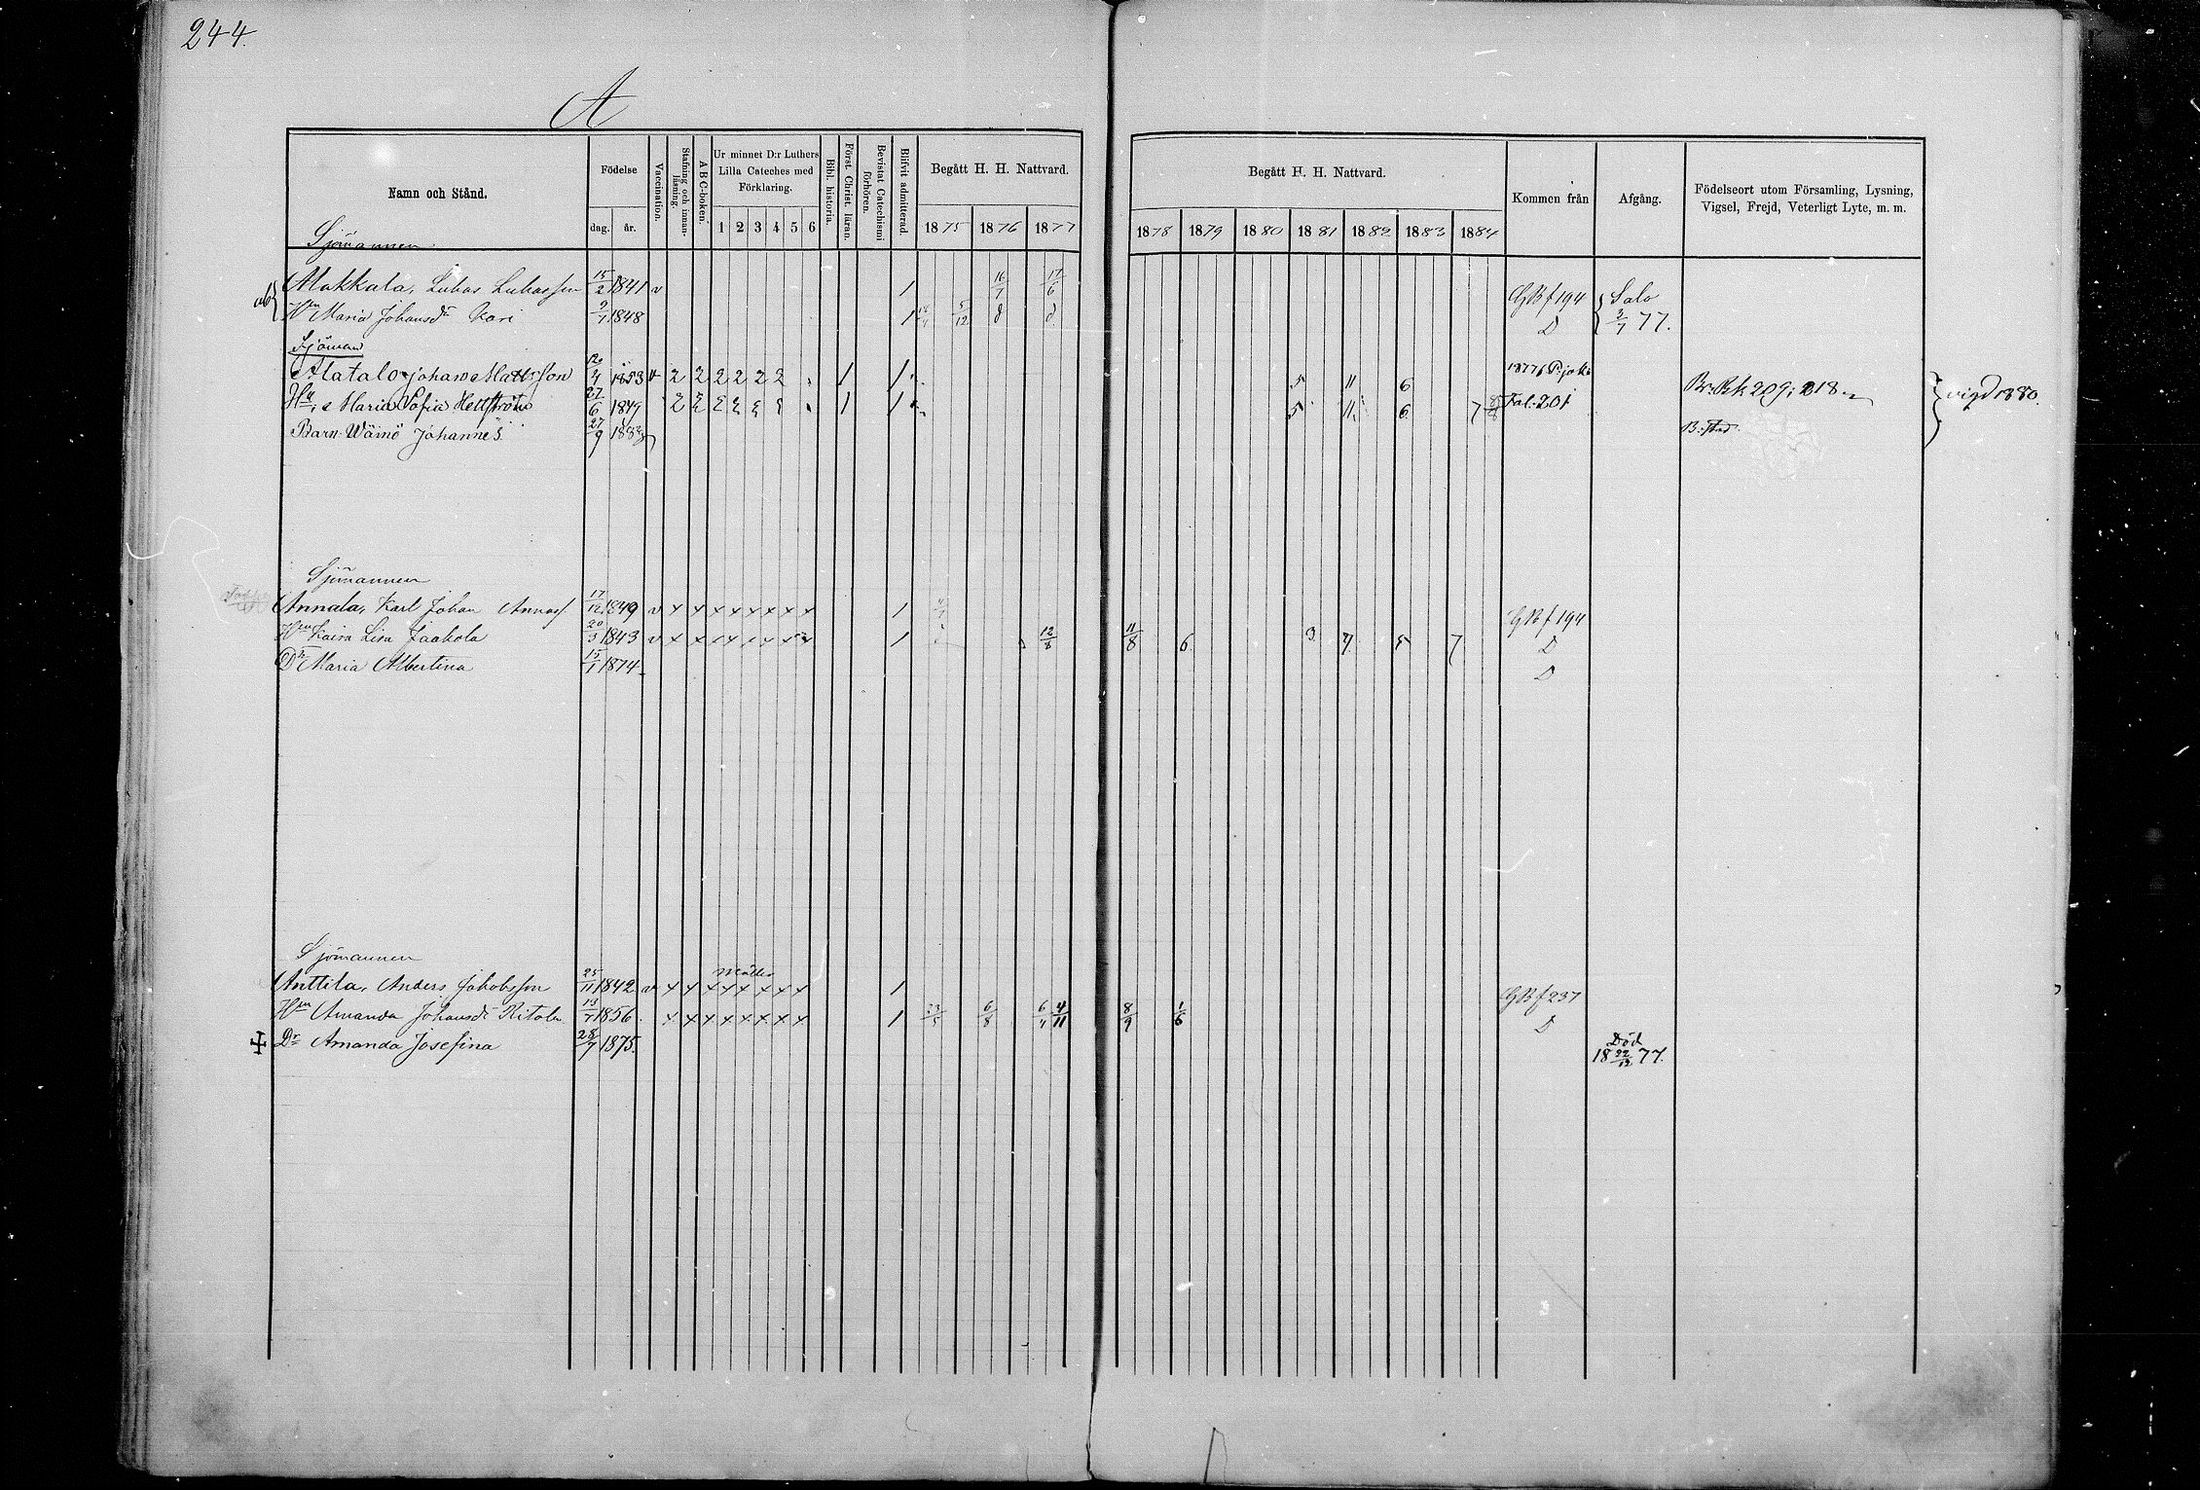 244.
A
Namn och Stånd.
Födelse
dag. år.
Vaccination.
Stafning och innanläsning.
A B C-boken.
Ur minnet D:r Luthers Lilla Cateches med Förklaring.
1 2 3 4 5 6
Bibl. historia.
Först. Christ. läran.
Bevistat Catechismi förhören.
Blifvit admitterad.
Begått H. H. Nattvard.
1875 1876 1877
Begått H. H. Nattvard.
1878 1879 1880 1881 1882 1883 1884
Kommen från
Afgång.
Födelseort utom Församling, Lysning, Vigsel, Frejd, Veterligt Lyte, m. m.
Sjömannen
Lukas Lukasson 15/2 1841 v 1 16/7 17/6 GBf 194 Salo
Hn Maria Johansd:r Kari 9/7 1848 1 5/12 d d D 3/7 77.
Sjöman
Alatalo Johan Mattsson 4 1853 v 2 2 2 2 2 2 1 1 5 11 6
H:u Maria Sofia Hellström 27/6 1849 2 1 1 5 11 6 7 Fal. 201 Br. Bk 209; 218 vigd 1880.
Barn Wäinö Johannes 27/9 1883 B. stad
Sjömannen
Annala, Karl Johan 17/12 1849 v x x x x x x x x 1 GBf 194
Hn Kaisa Lisa Jaakola 20/3 1843 v x x x x x x 1 12/8 11/8 6 3 7 5 7 D
Dr Maria Albertina 15/1 1874 D
Sjömannen
Anttila, Anders Jakobsson 25/11 1842 v x x x x x x x x 1 GBf 237
Hn Amanda Johansd:r Ritola 13/7 1856 x x x x x x x x 1 23/5 6/8 6/4 4/11 8/9 1/6 D
Dr Amanda Josefina 28/7 1875. Död
18 22/12 77.